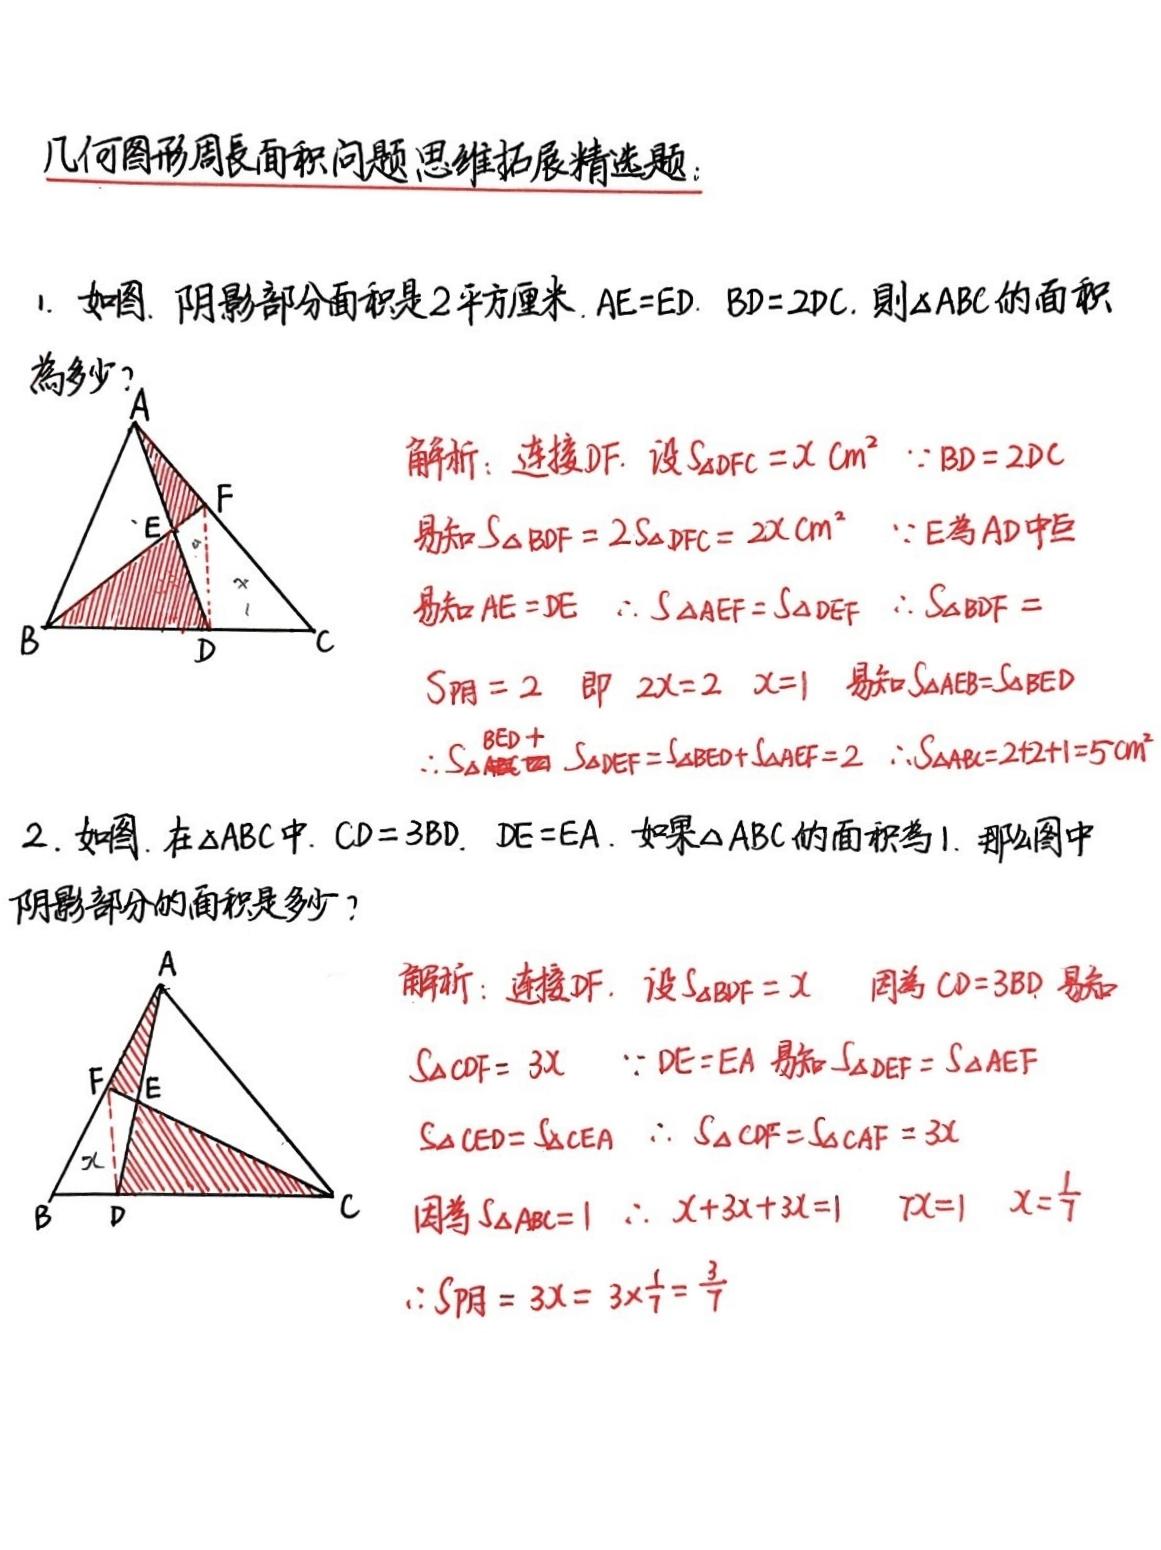 几何图形周長面积问题思维拓展精选题:
1. 如图. 阴影部分面积是2平方厘米. AE=ED. BD=2DC. 則△ABC的面积
為多少?
A
F
E
x
1
B
D
C
解析: 连接DF. 设S△DFC = x Cm² ∵BD=2DC
易知S△BDF = 2S△DFC = 2x Cm² ∵E為AD中点
易知AE=DE ∴S△AEF=S△DEF ∴S△BDF =
S阴 = 2 即 2x=2 x=1 易知S△AEB=S△BED
BED +
∴S△ S△DEF=S△BED+S△AEF=2 ∴S△ABC=2+2+1=5cm²
2. 如图. 在△ABC中. CD=3BD. DE=EA. 如果△ABC的面积為1. 那么图中
阴影部分的面积是多少?
A
F
E
x
B
D
C
解析: 连接DF. 设S△BDF = x 因為CD=3BD 易知
S△CDF = 3x ∵DE=EA 易知S△DEF = S△AEF
S△CED=S△CEA ∴ S△CDF=S△CAF = 3x
因為S△ABC=1 ∴ x+3x+3x=1 7x=1 x=1/7
∴S阴 = 3x = 3×1/7 = 3/7